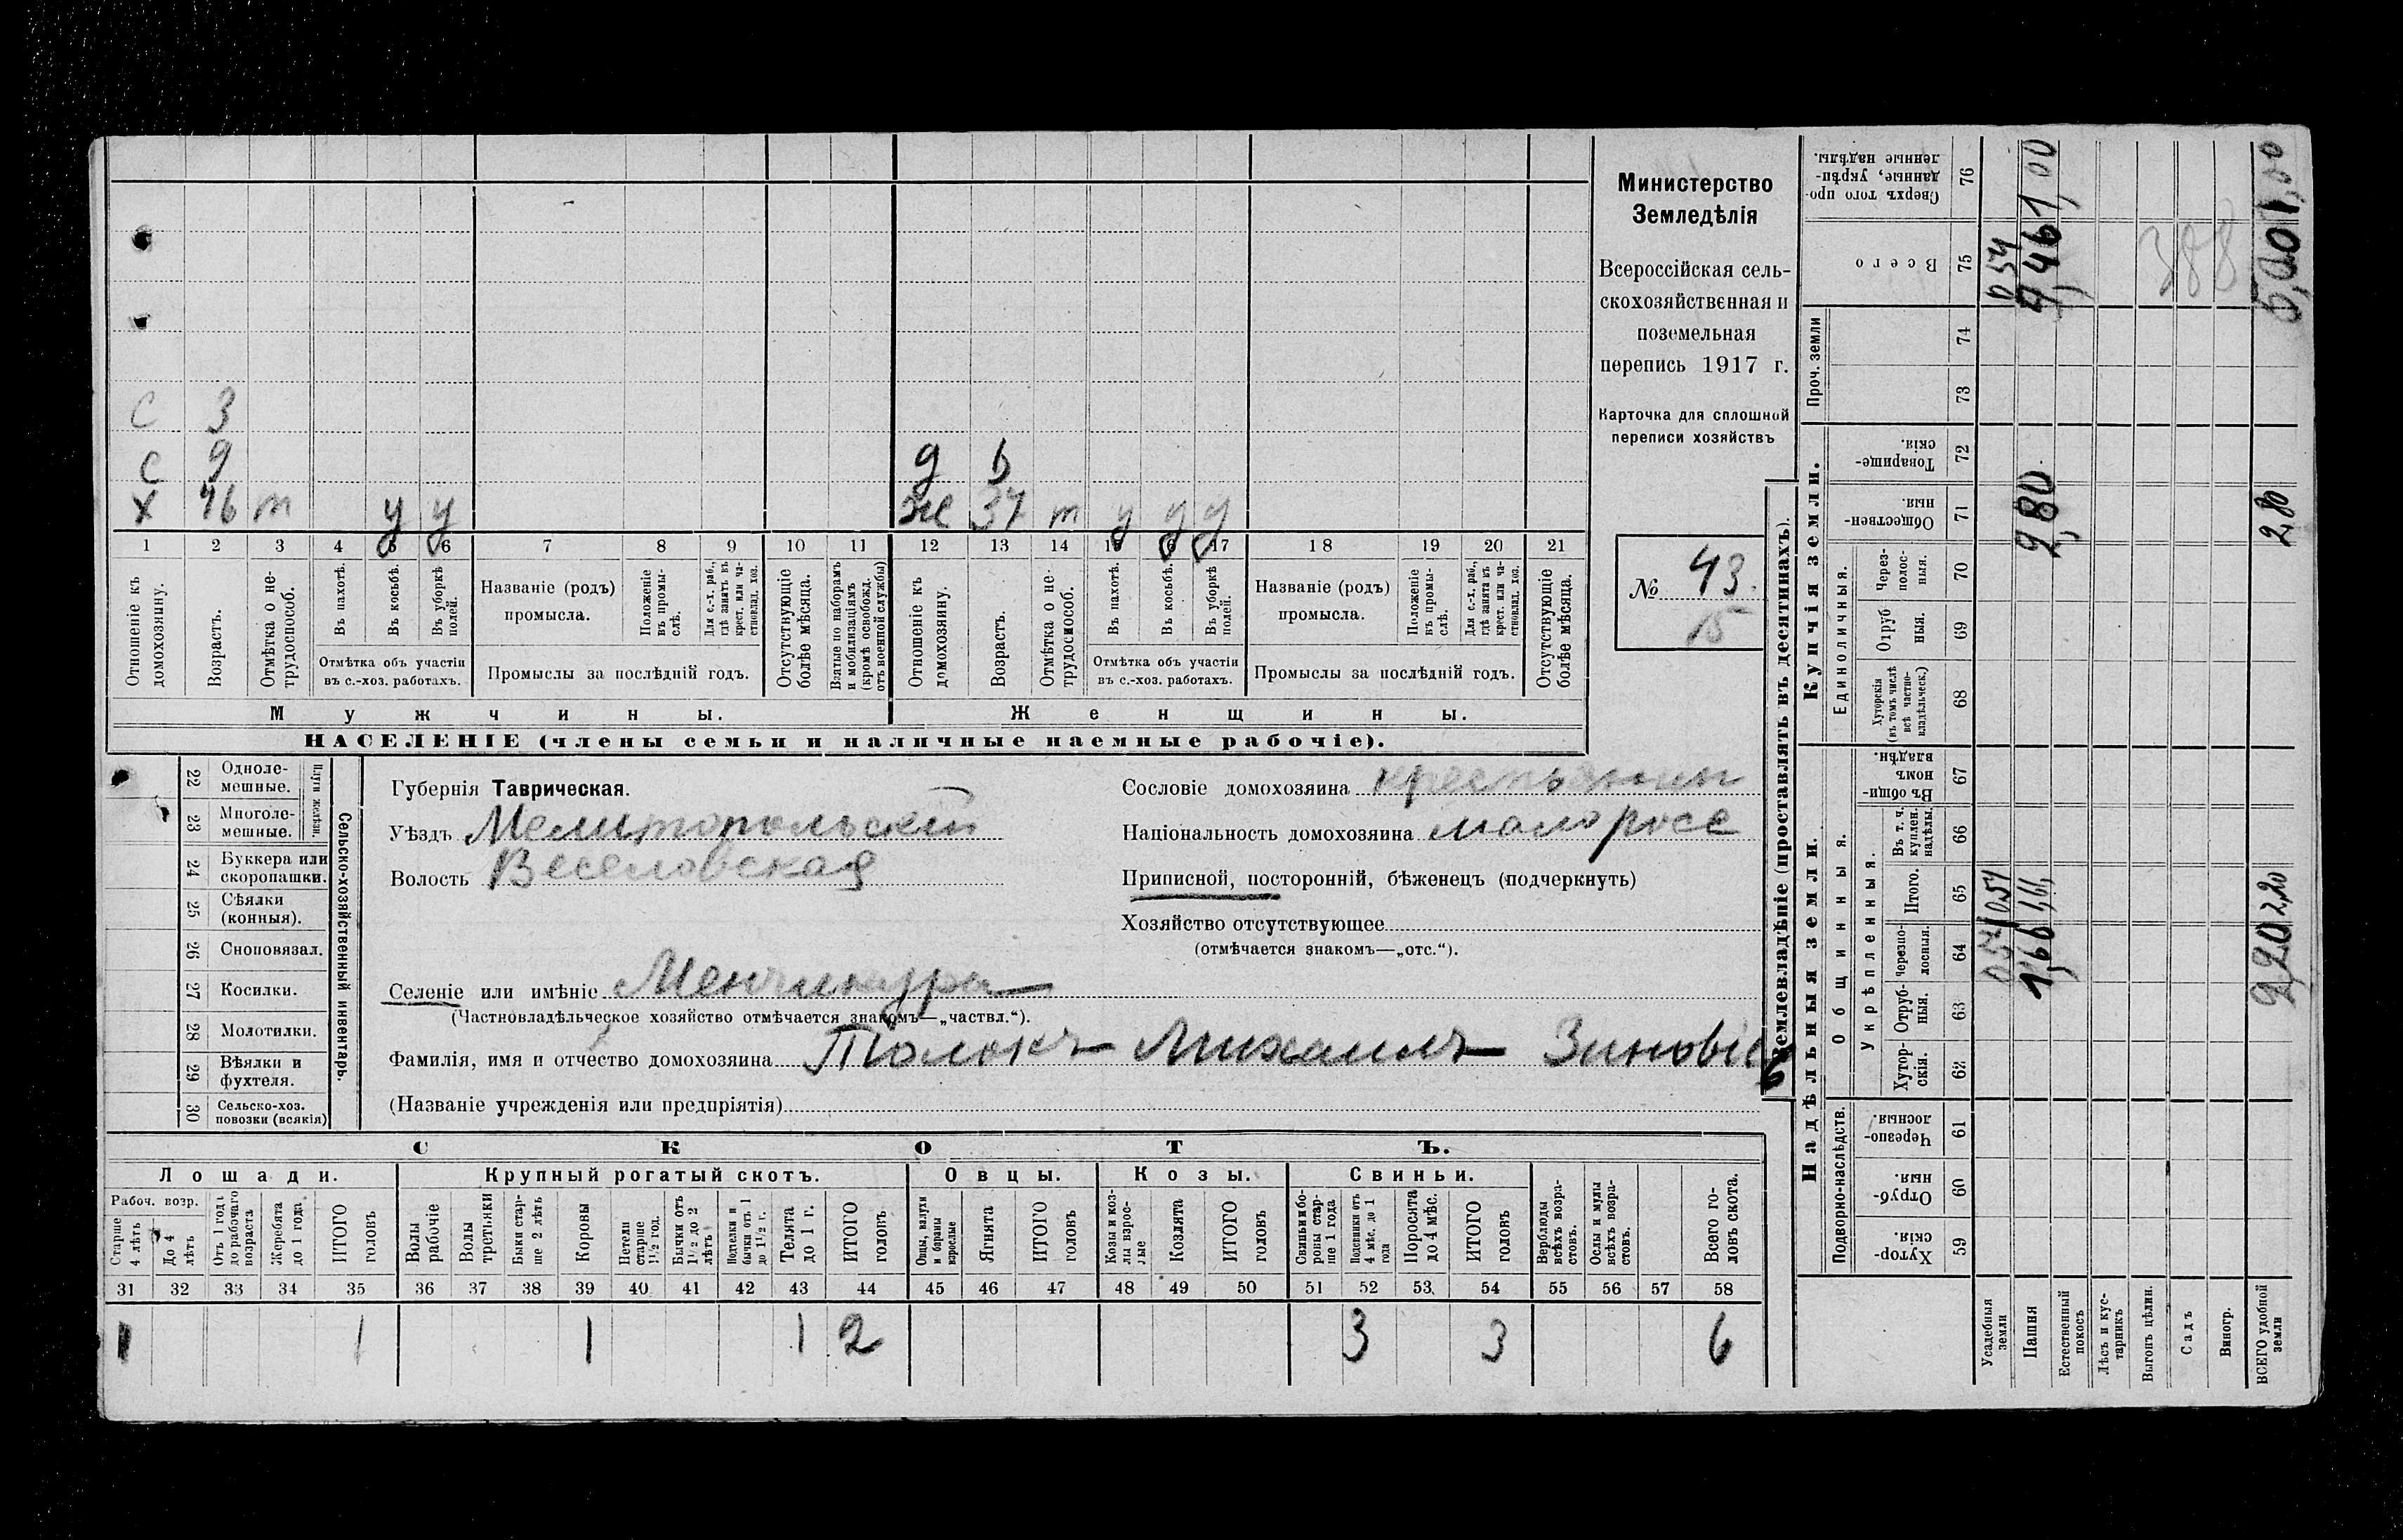 Министерство
Земледѣлія
Всероссійская сель-
скохозяйственная и
поземельная
перепись 1917 г.
Карточка для сплошной
переписи хозяйствъ
№ 43.
15
С 3
С 9 д
Х 46 т у у же 37 т у у у
1 2 3 4 5 6 7 8 9 10 11 12 13 14 15 16 17 18 19 20 21
Отношеніе къ домохозяину.
Возрастъ.
Отмѣтка о не-трудоспособ.
Въ пахотѣ.
Въ косьбѣ.
Въ уборкѣ полей.
Отмѣтка объ участіи
въ с.-хоз. работахъ.
Названіе (родъ)
промысла.
Положеніе въ промы-слѣ.
Для с.-х. раб., гдѣ занятъ въ крест. или ча-стновлад. хоз.
Промыслы за послѣдній годъ.
Отсутствующіе болѣе мѣсяца.
Взятые по наборамъ и мобилизаціямъ (кромѣ освобожд. отъ военной службы)
Отношеніе къ домохозяину.
Возрастъ.
Отмѣтка о не-трудоспособ.
Въ пахотѣ.
Въ косьбѣ.
Въ уборкѣ полей.
Отмѣтка объ участіи
въ с.-хоз. работахъ.
Названіе (родъ)
промысла.
Положеніе въ промы-слѣ.
Для с.-х. раб., гдѣ занята въ крест. или ча-стновлад. хоз.
Промыслы за послѣдній годъ.
Отсутствующіе болѣе мѣсяца.
Мужчины. Женщины.
НАСЕЛЕНІЕ (члены семьи и наличные наемные рабочіе).
22 Одноле-мешные.
23 Многоле-мешные.
Плуги желѣзн.
24 Буккера или скоропашки.
25 Сѣялки (конныя).
26 Сноповязал.
27 Косилки.
28 Молотилки.
29 Вѣялки и фухтеля.
30 Сельско-хоз. повозки (всякія)
Сельско-хозяйственный инвентарь.
Губернія Таврическая.
Уѣздъ Мелитопольскій
Волость Веселовская
Сословіе домохозяина крестьянин
Національность домохозяина малоросс
Приписной, посторонній, бѣженецъ (подчеркнуть)
Хозяйство отсутствующее
(отмѣчается знакомъ—„отс.“).
Селеніе или имѣніе Менчикура
(Частновладѣльческое хозяйство отмѣчается знакомъ—„частвл.“).
Фамилія, имя и отчество домохозяина Толокъ Михаилъ Зиновіев
(Названіе учрежденія или предпріятія)
СКОТЪ.
Лошади. Крупный рогатый скотъ. Овцы. Козы. Свиньи.
Рабоч. возр.
Старше 4 лѣтъ
До 4 лѣтъ
Отъ 1 года до рабочаго возраста
Жеребята до 1 года
ИТОГО головъ
Волы рабочіе
Волы третьяки
Быки стар-ше 2 лѣтъ
Коровы
Нетели старше 1½ год.
Бычки отъ 1½ до 2 лѣтъ
Подтелки и бычки отъ 1 до 1½ г.
Телята до 1 г.
ИТОГО головъ
Овцы, валухи и бараны взрослые
Ягнята
ИТОГО головъ
Козы и коз-лы взрос-лые
Козлята
ИТОГО головъ
Свиньи и бо-ровы стар-ше 1 года
Подсвинки отъ 4 мѣс. до 1 года
Поросята до 4 мѣс.
ИТОГО головъ
Верблюды всѣхъ возра-стовъ.
Ослы и мулы всѣхъ возра-стовъ.
Всего го-ловъ скота.
31 32 33 34 35 36 37 38 39 40 41 42 43 44 45 46 47 48 49 50 51 52 53 54 55 56 57 58
1 1 1 1 2 3 3 6
Землевладѣніе (проставлять въ десятинахъ).
Надѣльныя земли. Купчія земли. Проч. земли
Подворно-наслѣдств.
Общинныя.
Укрѣпленныя.
Единоличныя.
Хутор-скія. 59
Отруб-ныя. 60
Черезпо-лосныя. 61
Хутор-скія. 62
Отруб-ныя. 63
Черезпо-лосныя. 64
Итого. 65
Въ т. ч. куплен. надѣлы. 66
Въ общи-номъ владѣн. 67
Хуторскія (въ томъ числѣ всѣ частно-владѣльческ.) 68
Отруб-ныя. 69
Через-полос-ныя. 70
Обществен-ныя. 71
Товарище-скія. 72
73
74
Всего 75
Сверхъ того про-данные, укрѣп-ленные надѣлы. 76
Усадебныя земли 054 054 054
Пашня 1,66 2,80 4,461,00
Естественный покосъ
Лѣсъ и кус-тарникъ
Выгонъ цѣлин.
Садъ
Виногр.
388
ВСЕГО удобной земли 2,20 2,20 2,80 5,001,00